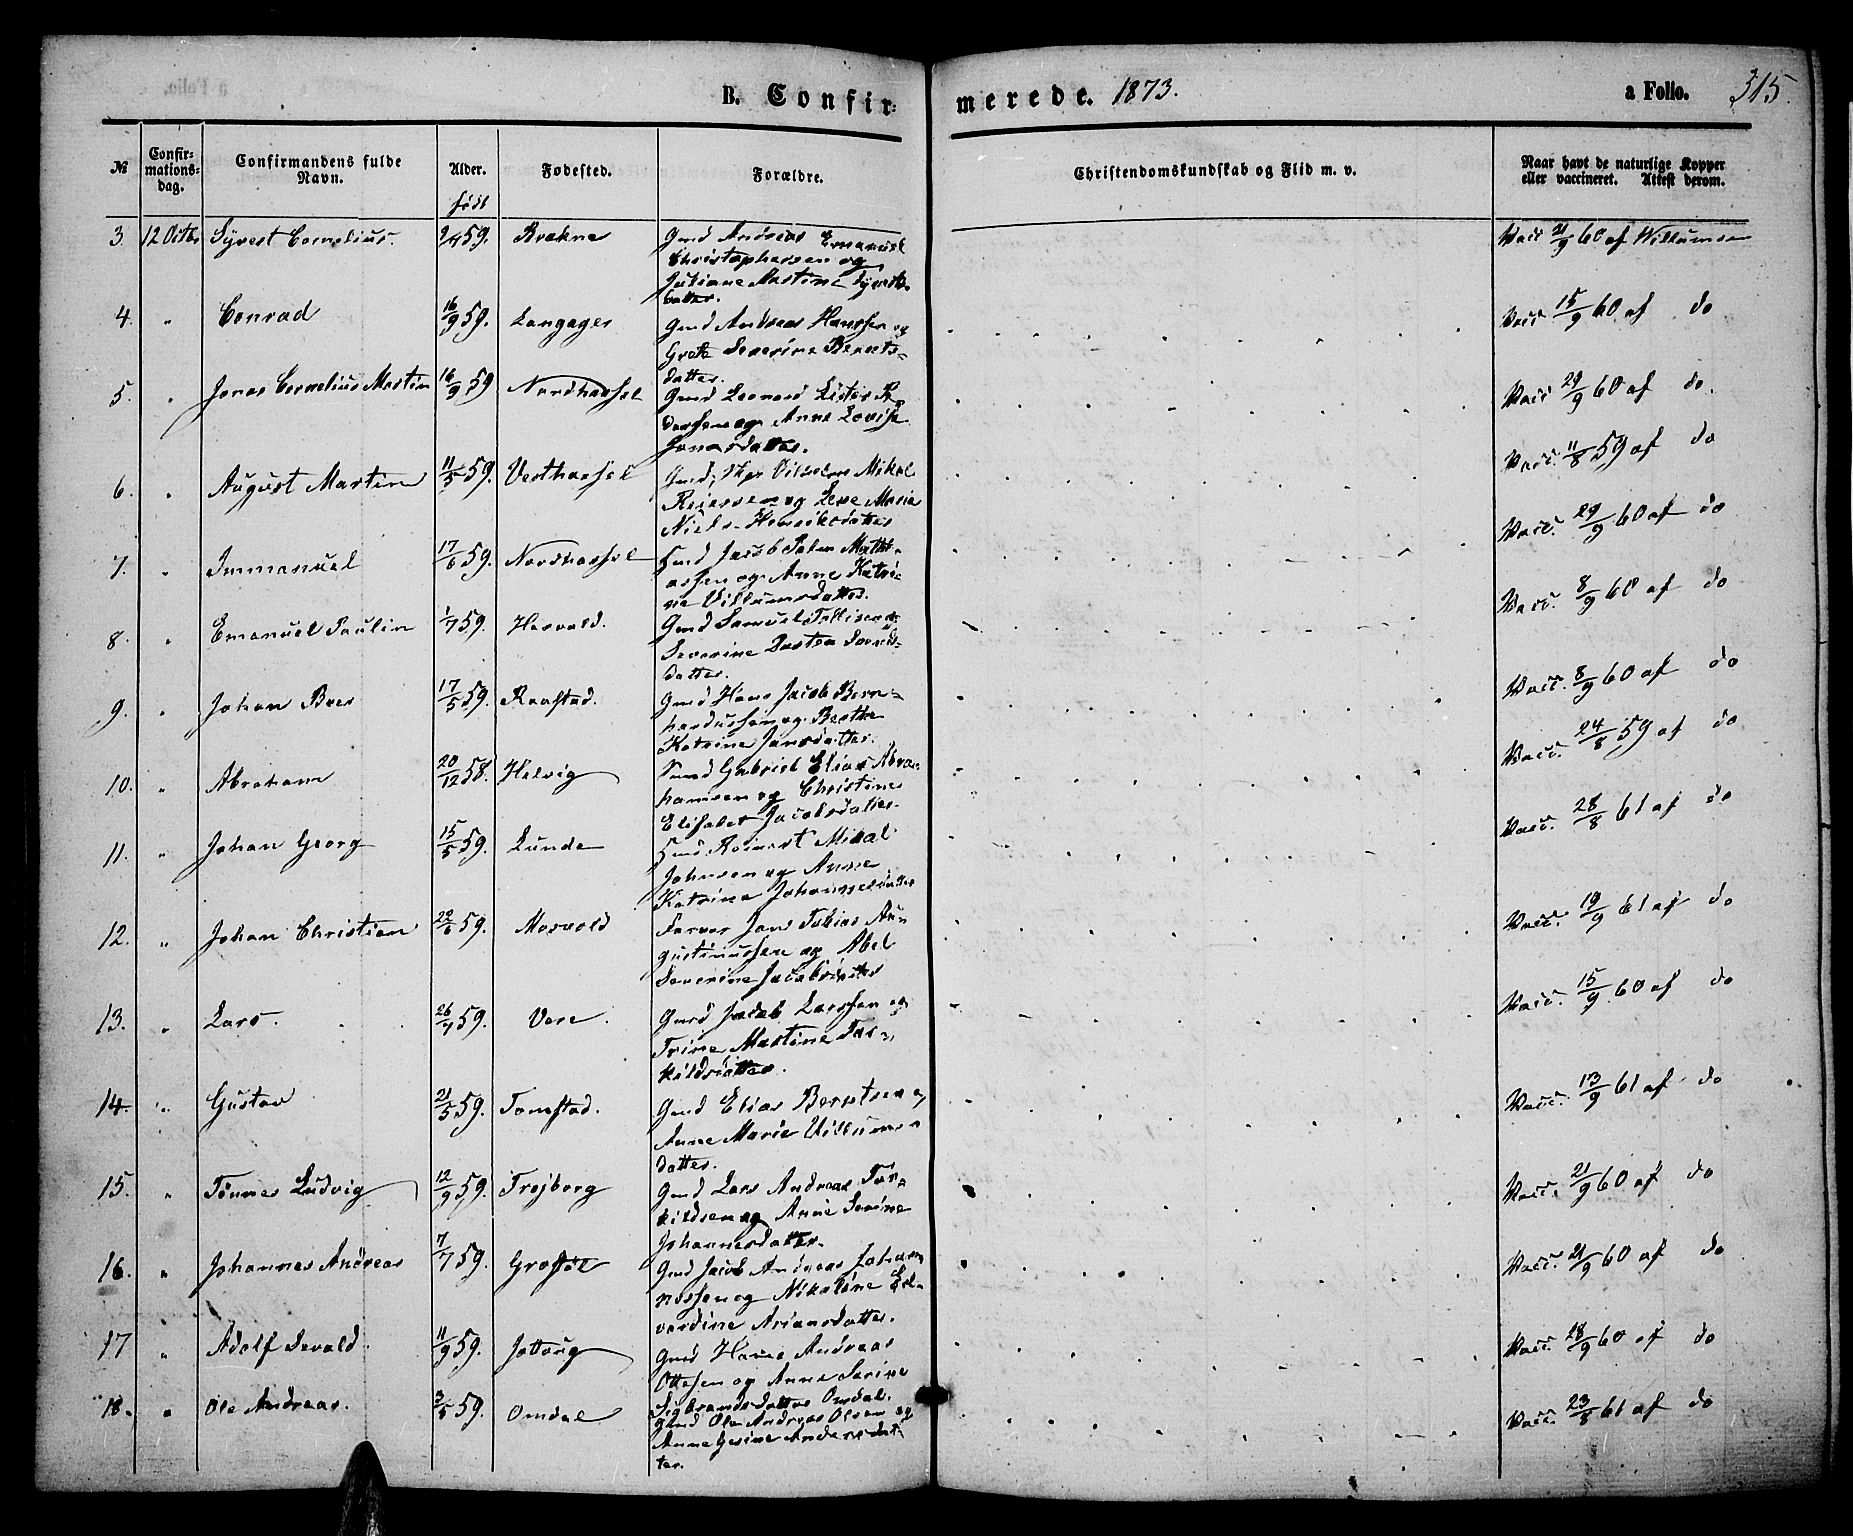 B. Confirmerede. 1873. a Folio. 315.
№ Confirmationsdag. Confirmandens fulde Navn. Alder. født Fødested. Forældre. Christendomskundskab og Flid m. v. Naar havt de naturlige Kopper eller vaccineret. Attest derom.
3. 12 Octbr Syvert Cornelius. 9/4 59. Brekne Gmd Andreas Emanuel Vacc 21/9 60 af Willumsen
Christophersen og
Juliane Martine Syverts-
datter.
4. " Conrad 16/9 59. Langager Gmd Andreas Hanssen og Vacc 15/9 60 af do
Grete Severine Berents-
datter.
5. " Jonas Cornelius Martin 16/9 59 Nordhassel Gmd Leonard Lister Vacc 29/9 60 af do.
og Anne Lovise
Jonasdatter.
6. " August Martin 11/5 59. Vesthassel Gmd, Mikal Vacc. 11/8 59 af do
Reiersen og Lene Maria
Niels Henriksdatter
7. " Immanuel 17/6 59. Nordhassel Jacob Peter Math- Vacc. 29/9 60 af do
assen og Anne Katri-
ne Villumsdatter.
8. " Emanuel Paulin 1/7 59. Hervold. Gmd Samuel Tollisen og Vacc. 8/9 60 af do
Severine
datter.
9. " Johan Brer 17/5 59. Ravstad. Gmd Hans Jacob Bern- Vacc. 8/9 60 af do
hardussen og Berthe
Katrine Jansdatter.
10. " Abraham 20/12 58. Helvig Gabriel Elias Abra- Vacc. 24/8 59 af do
hamsen og Christine
Elisabet Jacobsdatter
11. " Johan Georg 15/5 59. Lunde Reinert Mikal Vacc. 28/8 61 af do
Johnsen og Anne
Katrine
12. " Johan Christian 22/6 59. Morvold Farver Jens Tobias Au- Vacc. 19/9 61 af do
gustinussen og Abel
Severine Jacobsdatter
13. " Lars. 26/7 59. Vere. Gmd Jacob Larssen og Vacc. 15/9 60 af do
Trine Martine Tor-
kildsdatter.
14. " Gustav 21/5 59. Tomstad. Gmd Elias Berntsen og Vacc. 13/9 61 af do
Anne Marie Villums-
datter.
15. " Tønnes Ludvig 12/9 59. Trejborg Gmd Lars Andreas Tor- Vacc. 21/9 60 af do
kildsen og Anne Serine
Johannesdatter.
16. " Johannes Andreas 7/7 59. Gmd Jacob Andreas Johan- Vacc. 21/9 60 af do
nessen og Nikoline Ed-
vardine Ariansdatter.
17 " Adolf Sevald. 11/9 59. Jølloug Gmd Hans Andreas Vacc. 28/9 60 af do
Ottesen og Anne Serine
Sigbrandsdatter Omdal.
18. " Ole Andreas. 3/5 59. Omdal Gmd Ole Andreas Olsen og Vacc. 23/8 61 af do
Anne Gesine Andersdat-
ter.